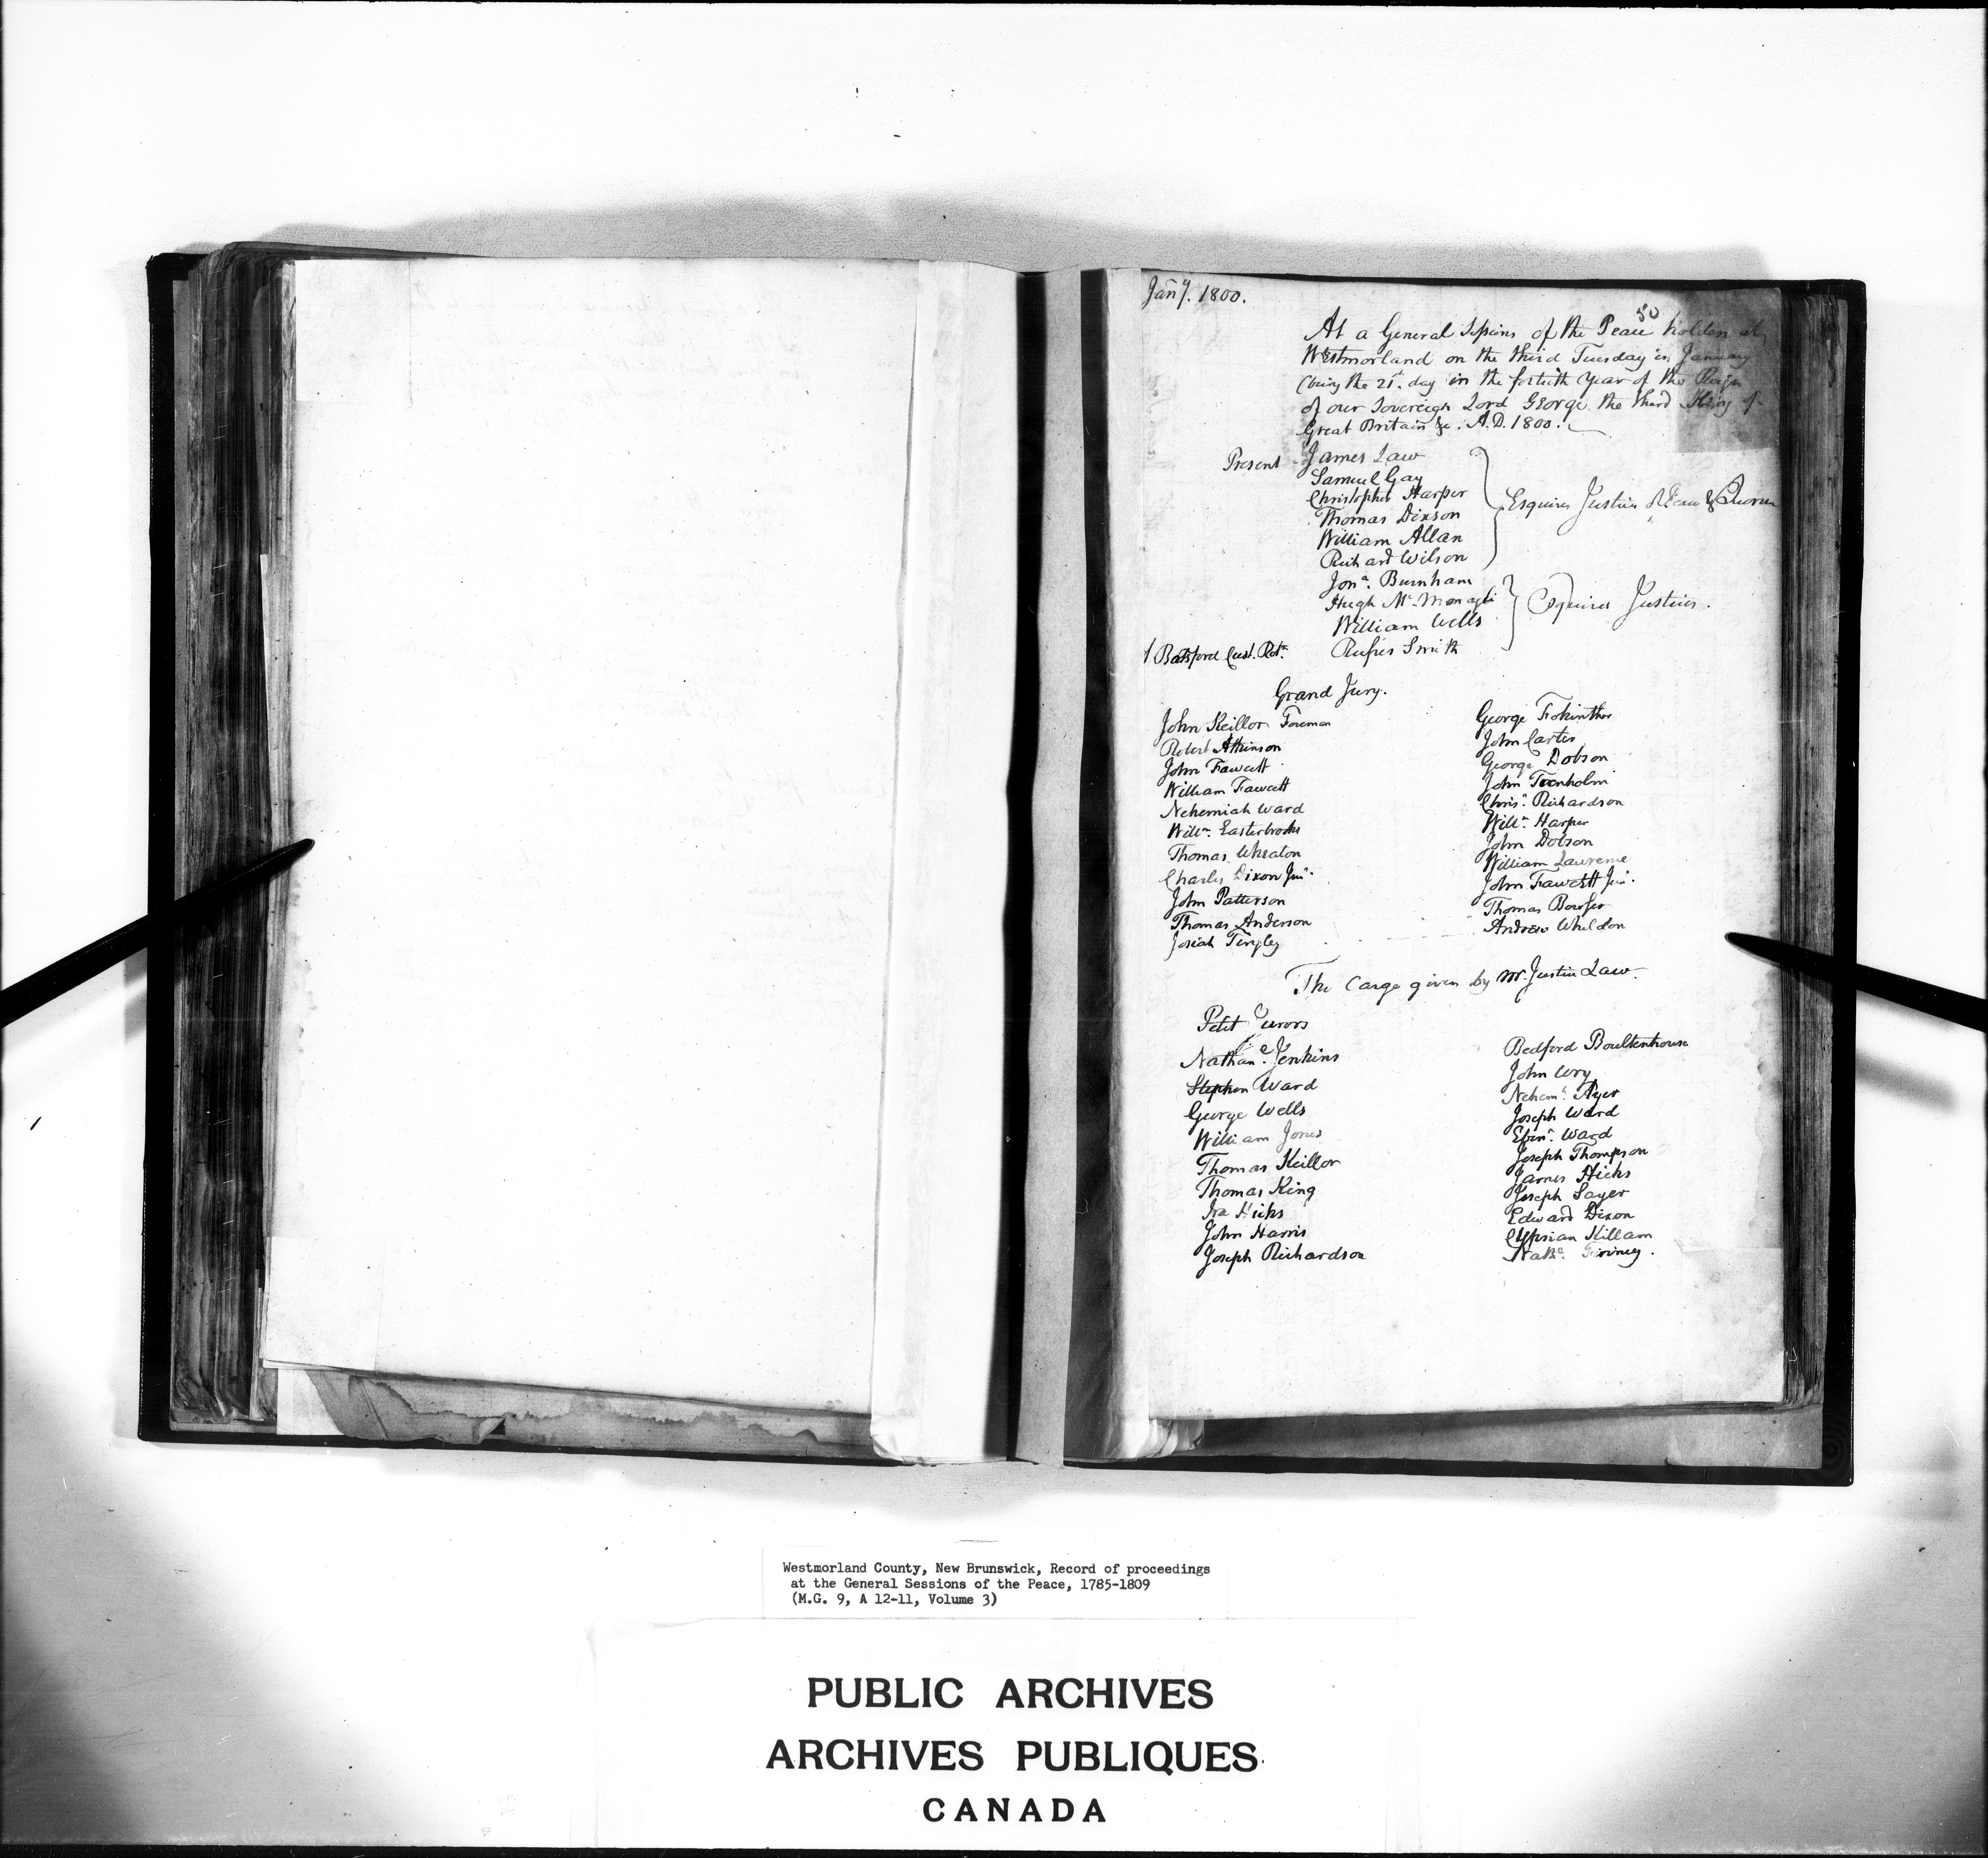 Jany. 1800.
50
At a General Sessions of the Peace holden at
Westmorland on the third Tuesday in January
(being the 21st. day in the fortieth Year of the Reign
of our Sovereign Lord George the third King of
Great Britain &c. A.D. 1800.
Present - James Law
Samuel Gay
Christopher Harper
Esquires Justices of Peace & Quorum
Thomas Dixson
William Allan
Richard Wilson
Jona. Burnham
Hugh Mc. Monagle
Esquires Justices.
William Wells
Botsford Cust. Rot.
Rufus Smith
Grand Jury.
John Keillor Foreman
Robert Atkinson
John Fawcett
William Fawcett
Nehemiah Ward
Willm. Easterbrooks
Thomas Wheaton
Charles Dixon Junr.
John Patterson
Thomas Anderson
Josiah Tingley
George
John Carter
George Dobson
John Trenholm
Chrisr. Richardson
Willm. Harper
John Dobson
William Lawrence
John Fawcett Junr.
Thomas Bowser
Andrew Wheldon
The Carge given by Mr. Justice Law.
Petit Jurors
Nathane. Jenkins
Stephen Ward
George Wells
William Jones
Thomas Keillor
Thomas King
Ira Hicks
John Harris
Joseph Richardson
Bedford Boultenhouse
John Wry
Nehemh. Ayer
Joseph Ward
Ebenr. Ward
Joseph Thompson
James Hicks
Joseph Sayer
Edward Dixon
Cyprian Killam
Nathe. Finney.
Westmorland County, New Brunswick, Record of proceedings
at the General Sessions of the Peace, 1785-1809
(M.G. 9, A 12-11, Volume 3)
PUBLIC ARCHIVES
ARCHIVES PUBLIQUES
CANADA